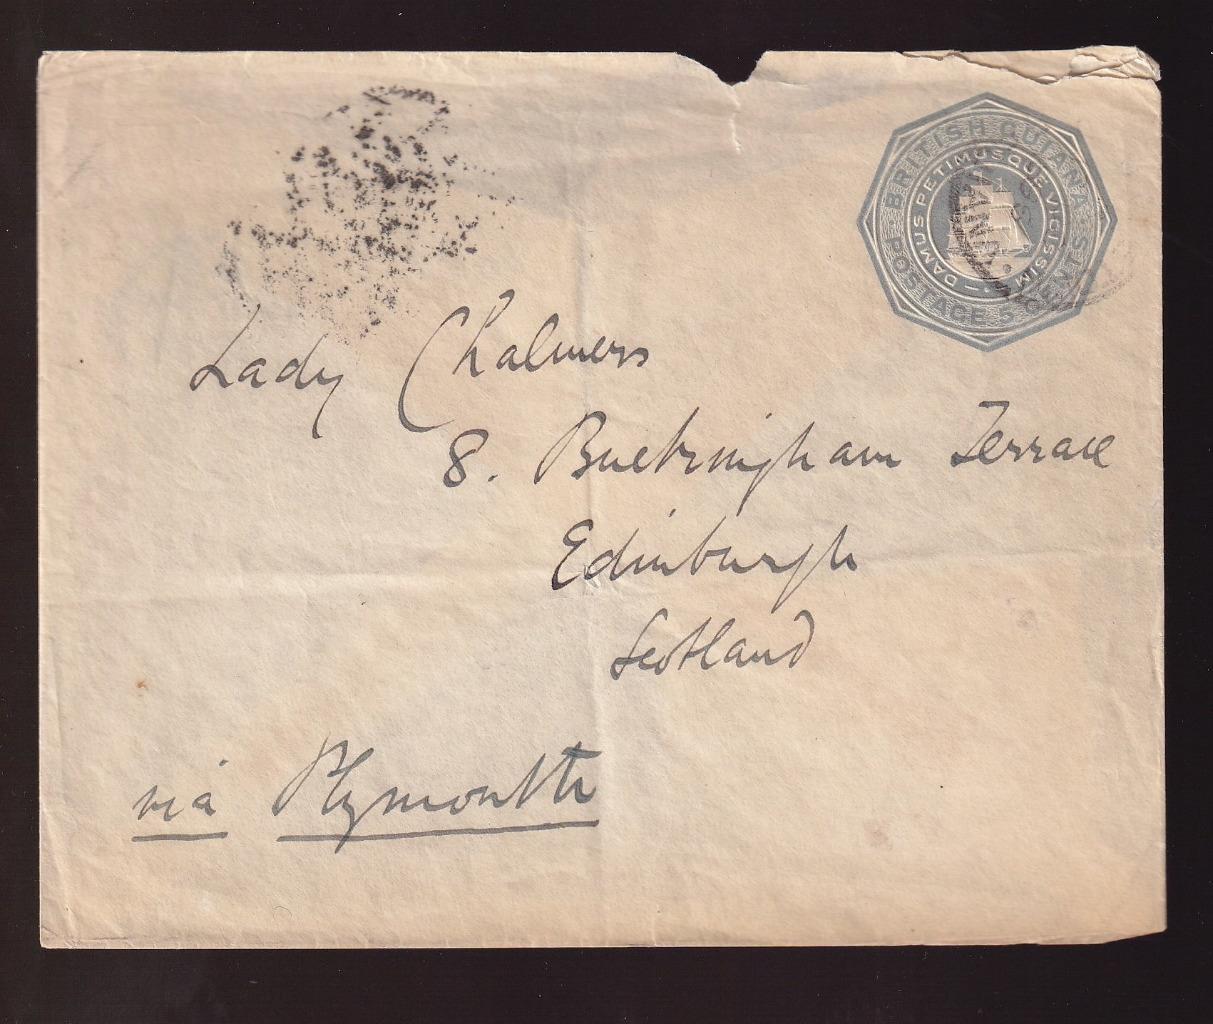 BRITISH GUIANA
DAMUS PETIMUSQUE VICISSIM
POSTAGE 5 CENTS
Lady Chalmers
8. Buckingham Terrace
Edinburgh
Scotland
via Plymouth